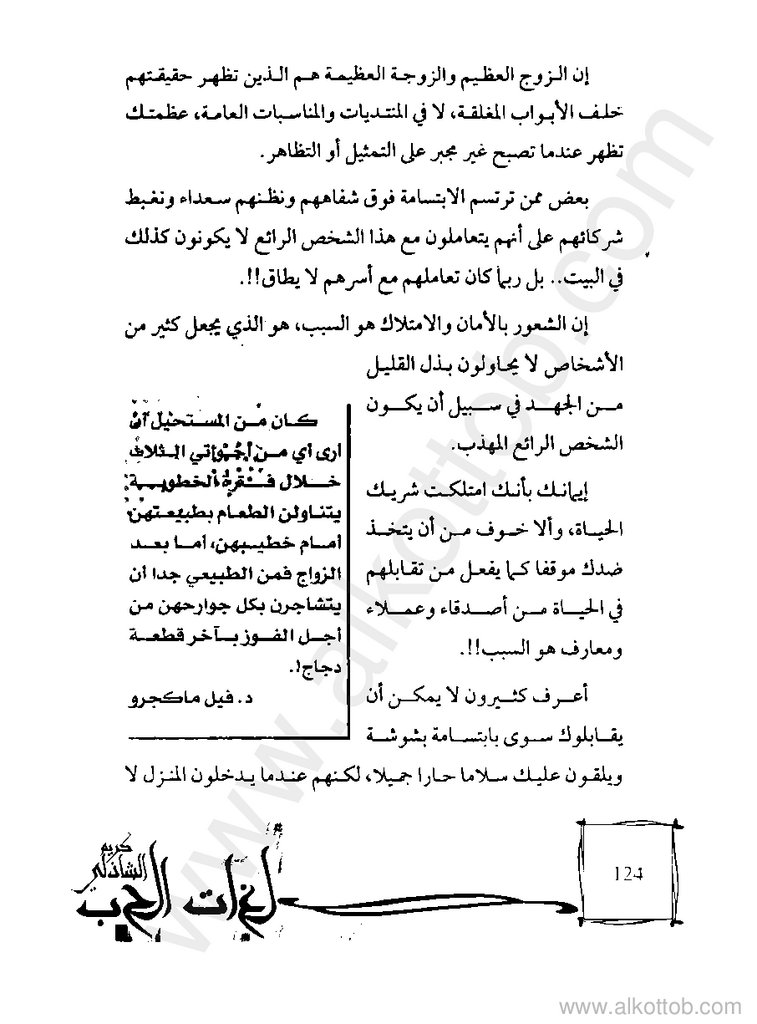 إن الزوج العظيم والزوجة العظيمة هم الذين تظهر حقيقتهم
خلف الأبواب المغلقة، لا في المنتديات والمناسبات العامة، عظمتك
تظهر عندما تصبح غير مجبر على التمثيل أو التظاهر.
بعض ممن ترتسم الابتسامة فوق شفاههم ونظنهم سعداء ونغبط
شركائهم على أنهم يتعاملون مع هذا الشخص الرائع لا يكونون كذلك
في البيت.. بل ربما كان تعاملهم مع أسرهم لا يطاق!!.
إن الشعور بالأمان والامتلاك هو السبب، هو الذي يجعل كثير من
الأشخاص لا يحاولون بذل القليل
من الجهد في سبيل أن يكون
الشخص الرائع المهذب.
إيمانك بأنك امتلكت شريك
الحياة، وألا خوف من أن يتخذ
ضدك موقفا كما يفعل من تقابلهم
في الحياة من أصدقاء وعملاء
ومعارف هو السبب!!.
أعرف كثيرون لا يمكن أن
يقابلوك سوى بابتسامة بشوشة
ويلقون عليك سلاما حارا جميلا، لكنهم عندما يدخلون المنزل لا
كان من المستحيل أن
أرى أي من أخواتي الثلاث
خلال فترة الخطوبة
يتناولن الطعام بطبيعتهن
أمام خطيبهن، أما بعد
الزواج فمن الطبيعي جدا أن
يتشاجرن بكل جوارحهن من
أجل الفوز بآخر قطعة
دجاج!.
د. فيل ماكجرو
كريم
الشاذلي
لغات الحب
124
www.alkottob.com
www.alkottob.com